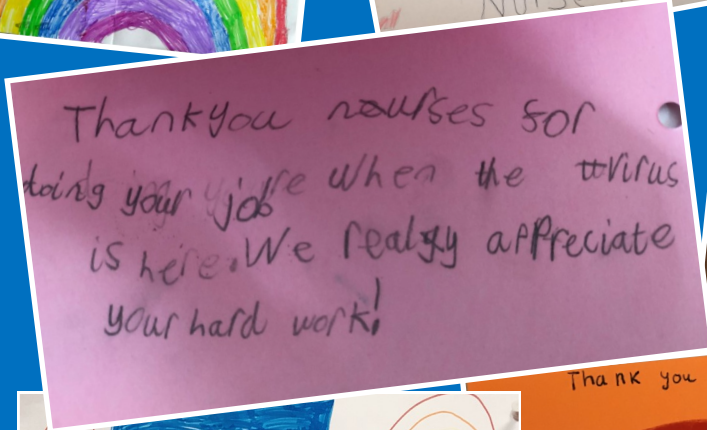 Nurse
Thankyou nourses for
doing your job when the virus
is here. We really appreciate
your hard work!
Thank you